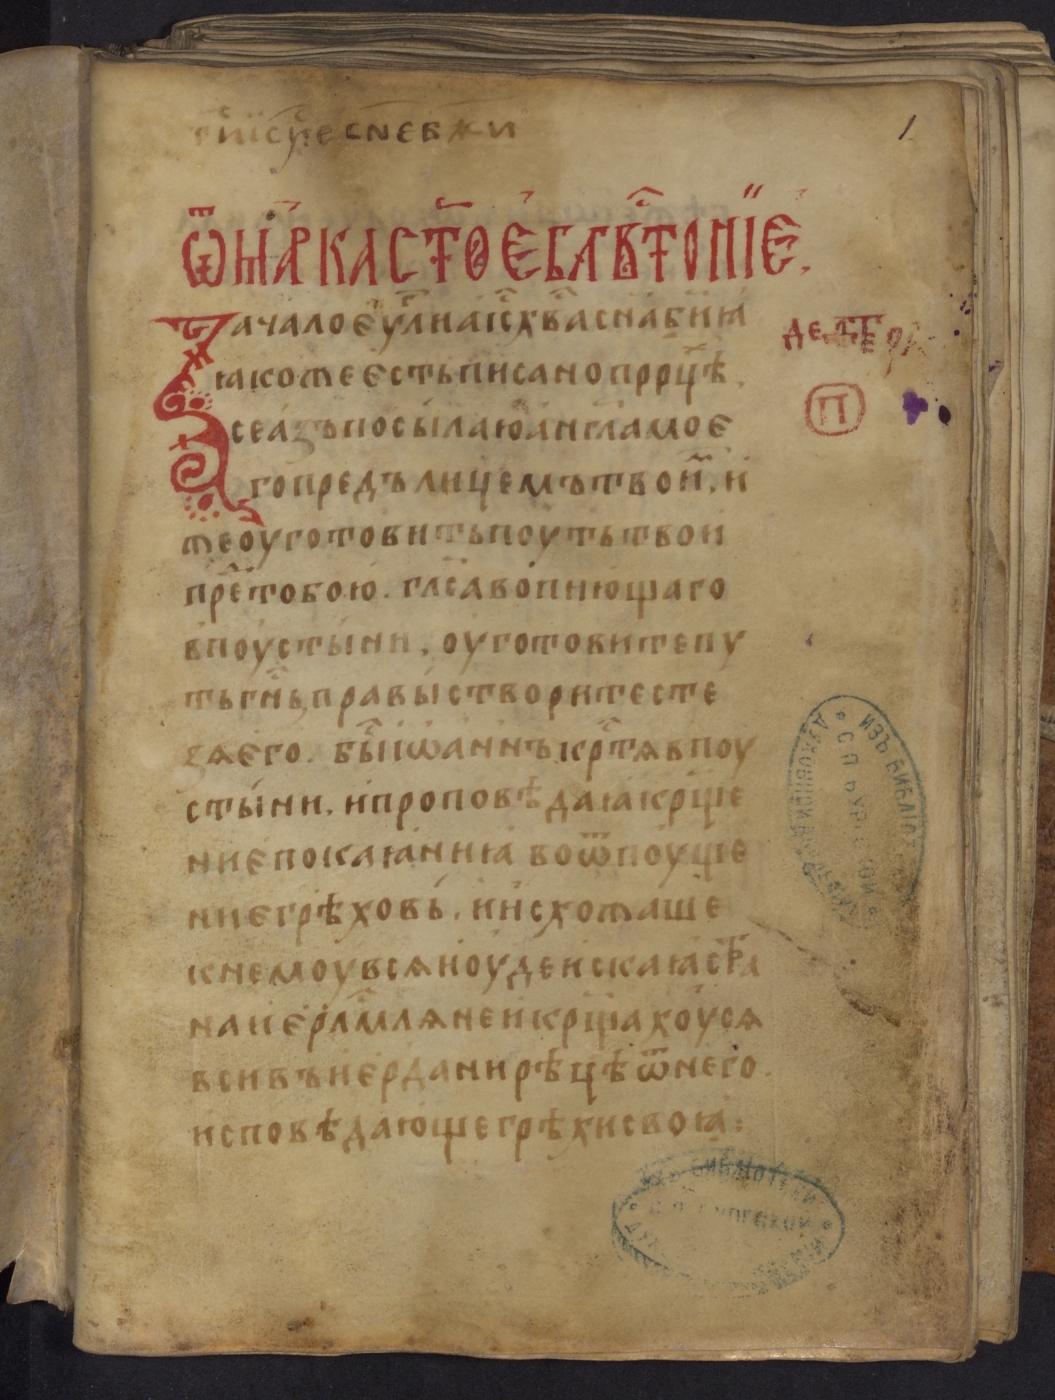 ги ісу хе сне бжи
1
Ѿ марка стое блгвтвоніе.
Зачало еѵлиа іс хва сна бниа
ꙗкоже есть писано пррцѣ.
се азъ посылаю англа мое
го предъ лицемъ твои, и
же оуготовить поуть твои
пре тобою. глс а вопиющаго
в поустыни. оуготовите пу
ть гнь правы створите сте
зѧ его. бы іѡаннъ кртѧ в поу
стыни. и проповѣдаꙗ крще
ние покаꙗниꙗ во ѿпоуще
ние грѣховъ. и исхожаше
к немоу всѧ иоудеискаꙗ стра
на и ерлмлѧне и крщахоусѧ
вси въ иердани рѣцѣ ѿ него.
исповѣдающе грѣхи своꙗ:
П
ИЗЪ БИБЛІОТЕКИ
ДУХОВНОЙ АКАДЕМІИ
ИЗЪ БИБЛІОТЕКИ